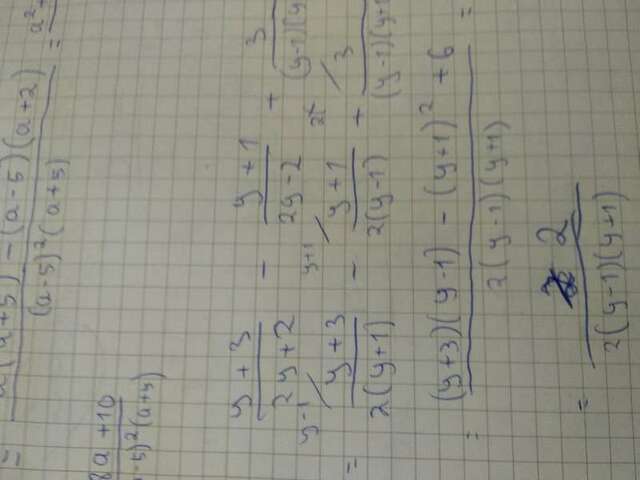 = a(a+5) - (a-5)(a+2) / (a-5)²(a+5) = a²
8a + 10 / -5)²(a+5)
y + 3 / 2y + 2 - y + 1 / 2y - 2 + 3 / (y-1)(y
y-1 y+1 2
= y + 3 / 2(y+1) - y + 1 / 2(y-1) + 3 / (y-1)(y+1
= (y+3)(y-1) - (y+1)² + 6 / 2(y-1)(y+1) =
= 2 / 2(y-1)(y+1)